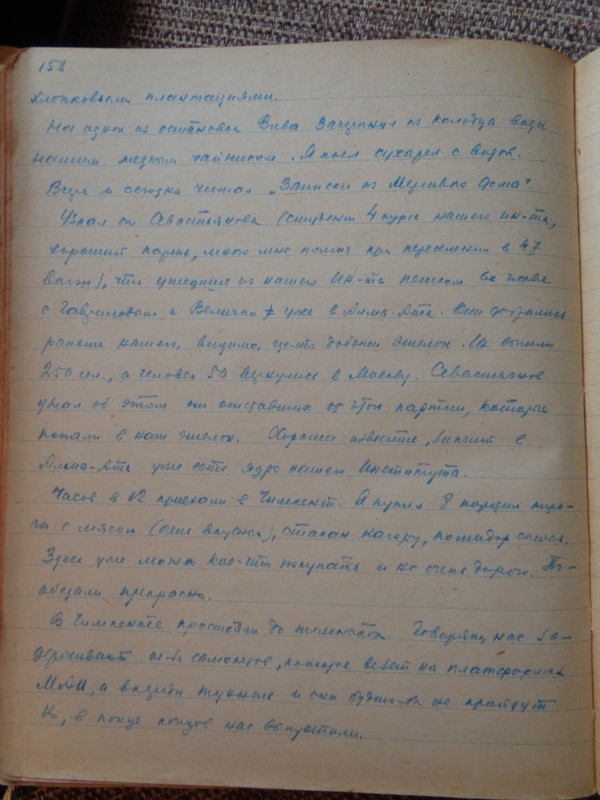 158
хлопковыми плантациями.
На одной из остановок Вива зачерпнул из колодца воды
нашим медным чайником. Я поел сухарей с водой.
Вчера и сегодня читал „Записки из Мертвого дома".
Узнал от Севастьянова (студент 4 курса нашего ин-та,
хороший парень, много мне помог при переселении в 47
вагон), что ушедшие из нашего Ин-та пешком во главе
с Гавриловым и Величко уже в Алма-Ате. Они добрались
раньше нашего, видимо, где-то добыли эшелон. Их было
250 чел., а человек 50 вернулись в Москву. Севастьянов
узнал об этом от отставших от этой партии, которые
попали в наш эшелон. Хорошее известие, значит в
Алма-Ате уже есть ядро нашего Института.
Часов в 12 приехали в Чимкент. Я купил 8 порций пиро-
га с мясом (очень вкусных), стакан кагору, помидор
Здесь уже можно кое-что покупать и не очень дорого. По-
обедали прекрасно.
В Чимкенте простояли до темноты. Говорят, нас за-
держивают из-за самолетов, которые везет на платформах
МАИ, а впереди туннель и они будто-бы не пройдут.
Но, в конце концов нас выпустили.